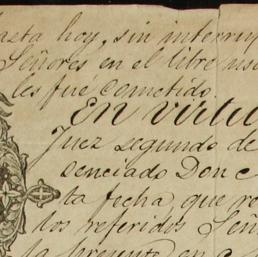 hasta hoy, sin interrup
Señores en el libro
les fué cometido.
En virtu
Juez segundo de
senciado Don
ta fecha, que re
los referidos Seño
la presente en